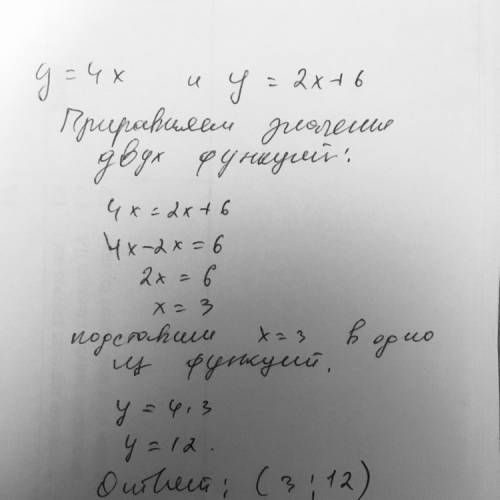 y = 4x и y = 2x+6
Приравняем значения
двух функций:
4x = 2x+6
4x-2x = 6
2x = 6
x = 3
подставим x = 3 в одно
из функций.
y = 4·3
y = 12.
Ответ: (3;12)